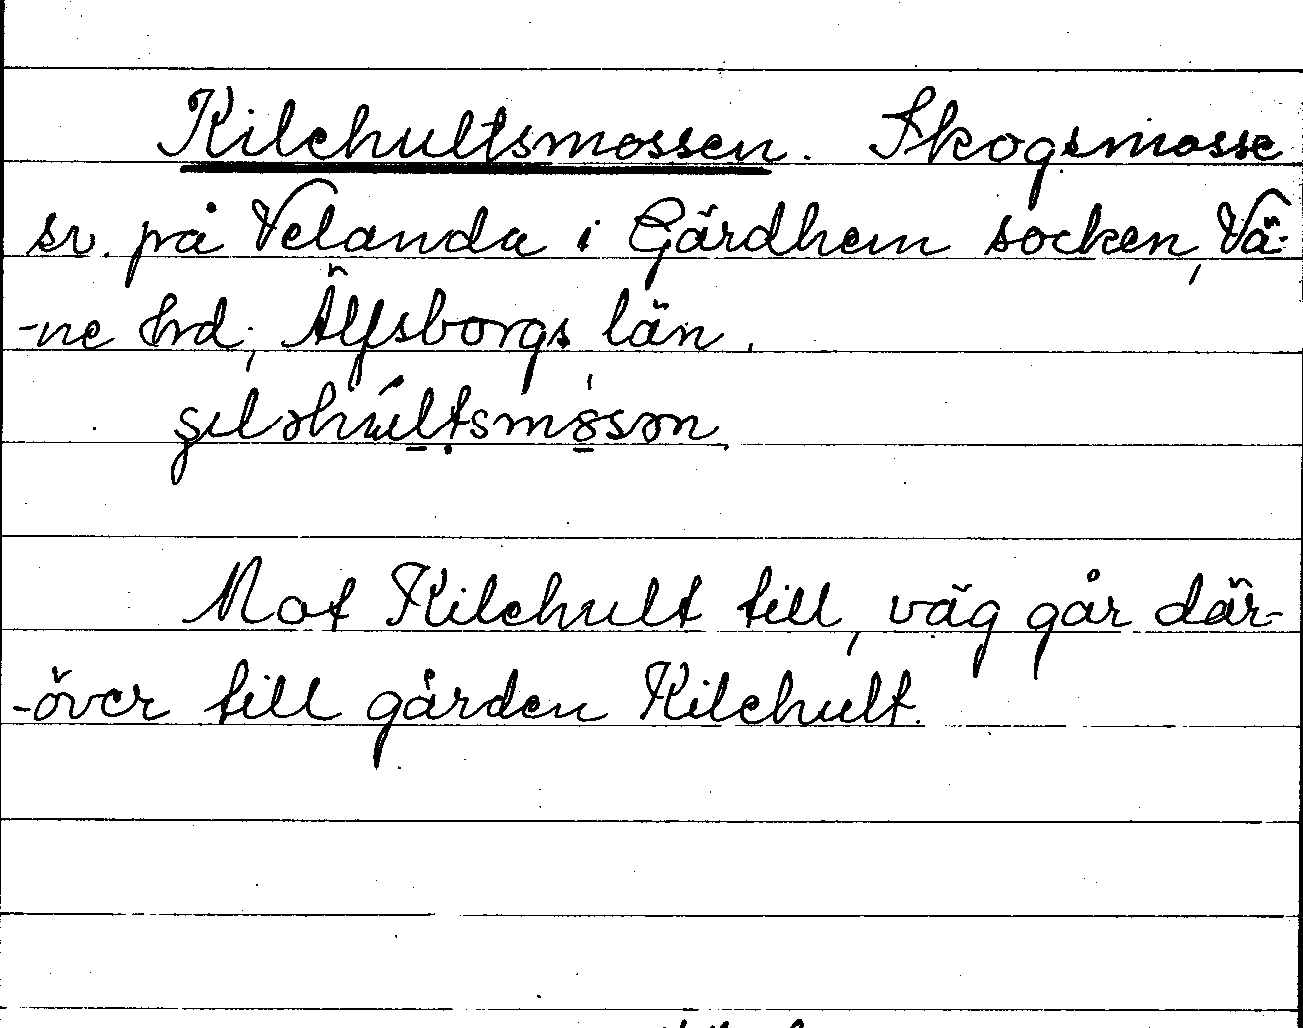 Kilehultsmossen. Skogsmosse
sv. på Velanda i Gärdhem socken, Vä-
-ne hrd; Älfsborgs län.
Mot Kilehult till, väg går där-
-över till gården Kilehult.